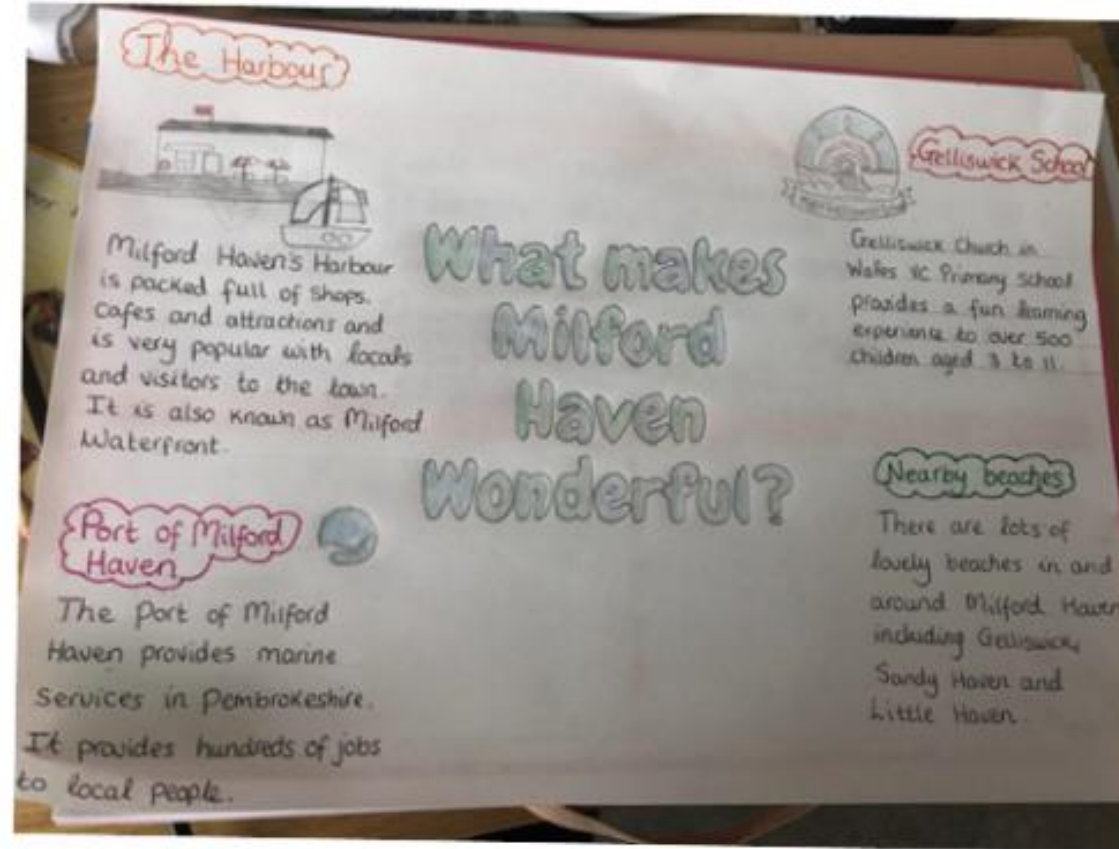 The Harbour
Milford Haven's Harbour
is packed full of shops,
cafes and attractions and
is very popular with locals
and visitors to the town.
It is also known as Milford
Waterfront.
Port of Milford
Haven
The Port of Milford
Haven provides marine
Services in Pembrokeshire.
It provides hundreds of jobs
to local people.
What makes
Milford
Haven
Wonderful?
Gelliswick School
Gelliswick Church in
Wales VC Primary School
provides a fun learning
experience to over 500
children aged 3 to 11.
Nearby beaches
There are lots of
lovely beaches in and
around Milford Haven
including Gelliswick,
Sandy Haven and
Little Haven.